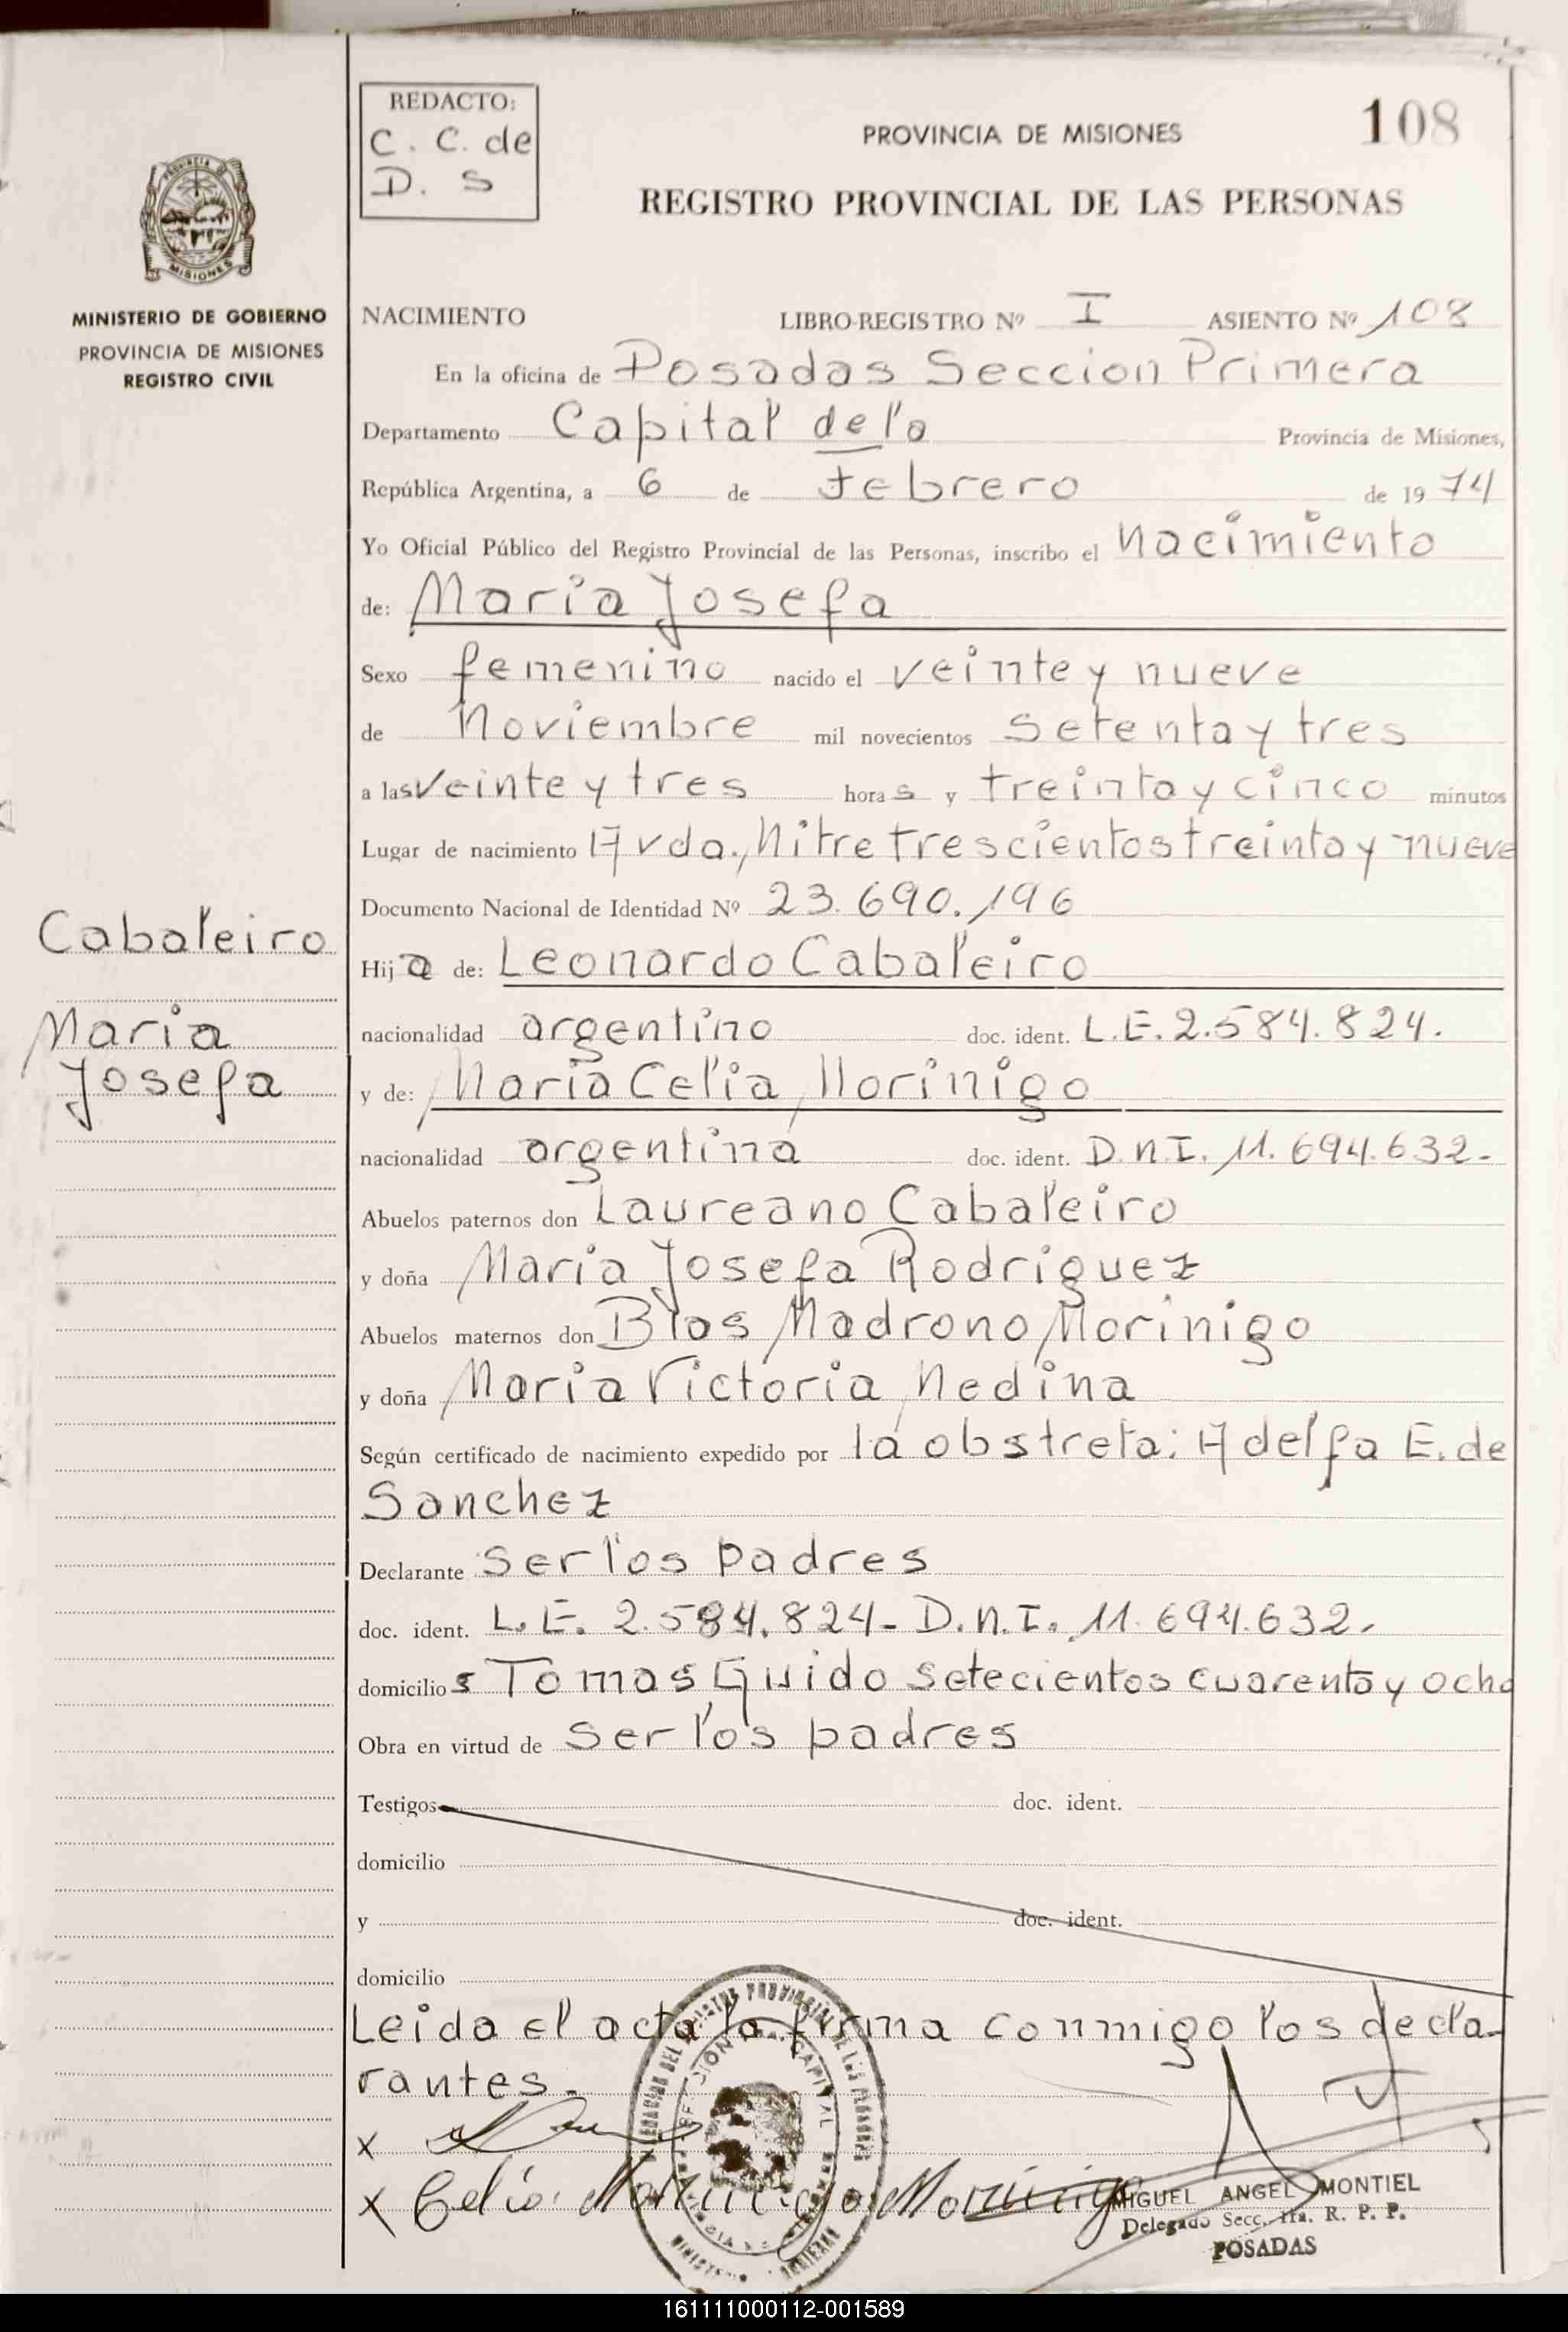 REDACTO:
C. C. de
D. S
PROVINCIA DE MISIONES
108
REGISTRO PROVINCIAL DE LAS PERSONAS
PROVINCIA DE
MISIONES
MINISTERIO DE GOBIERNO
PROVINCIA DE MISIONES
REGISTRO CIVIL
NACIMIENTO LIBRO-REGISTRO Nº I ASIENTO Nº 108
En la oficina de Posadas Seccion Primera
Departamento Capital de la Provincia de Misiones,
República Argentina, a 6 de febrero de 1974
Yo Oficial Público del Registro Provincial de las Personas, inscribo el nacimiento
de: Maria Josefa
Sexo femenino nacido el veinte y nueve
de Noviembre mil novecientos setenta y tres
a las veinte y tres horas y treinta y cinco minutos
Lugar de nacimiento Avda. Mitre trescientos treinta y nueve
Documento Nacional de Identidad Nº 23.690.196
Cabaleiro
Maria
Josefa
Hija de: Leonardo Cabaleiro
nacionalidad argentino doc. ident. L.E. 2.584.824.
y de: Maria Celia Morinigo
nacionalidad argentina doc. ident. D.N.I. 11.694.632-
Abuelos paternos don Laureano Cabaleiro
y doña Maria Josefa Rodriguez
Abuelos maternos don Blas Madrono Morinigo
y doña Maria Victoria Medina
Según certificado de nacimiento expedido por la obstreta: Adelfa E. de
Sanchez
Declarante ser los padres
doc. ident. L.E. 2.584.824- D.N.I. 11.694.632.
domicilios Tomas Guido setecientos cuarenta y ocho
Obra en virtud de ser los padres
Testigos doc. ident.
domicilio
y doc. ident.
domicilio
Leida el acta la firma conmigo los decla-
rantes.
x
x Celia Morinigo
MIGUEL ANGEL MONTIEL
Delegado Secc. 1ra. R. P. P.
POSADAS
161111000112-001589